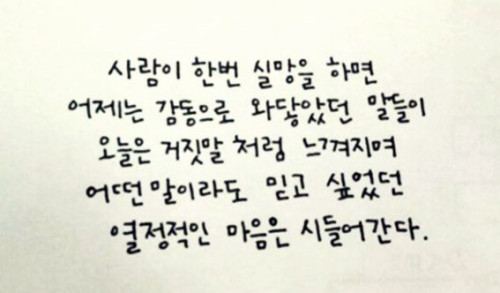 사람이 한번 실망을 하면
어제는 감동으로 와닿았던 말들이
오늘은 거짓말처럼 느껴지며
어떤말이라도 믿고 싶었던
열정적인 마음은 시들어간다.